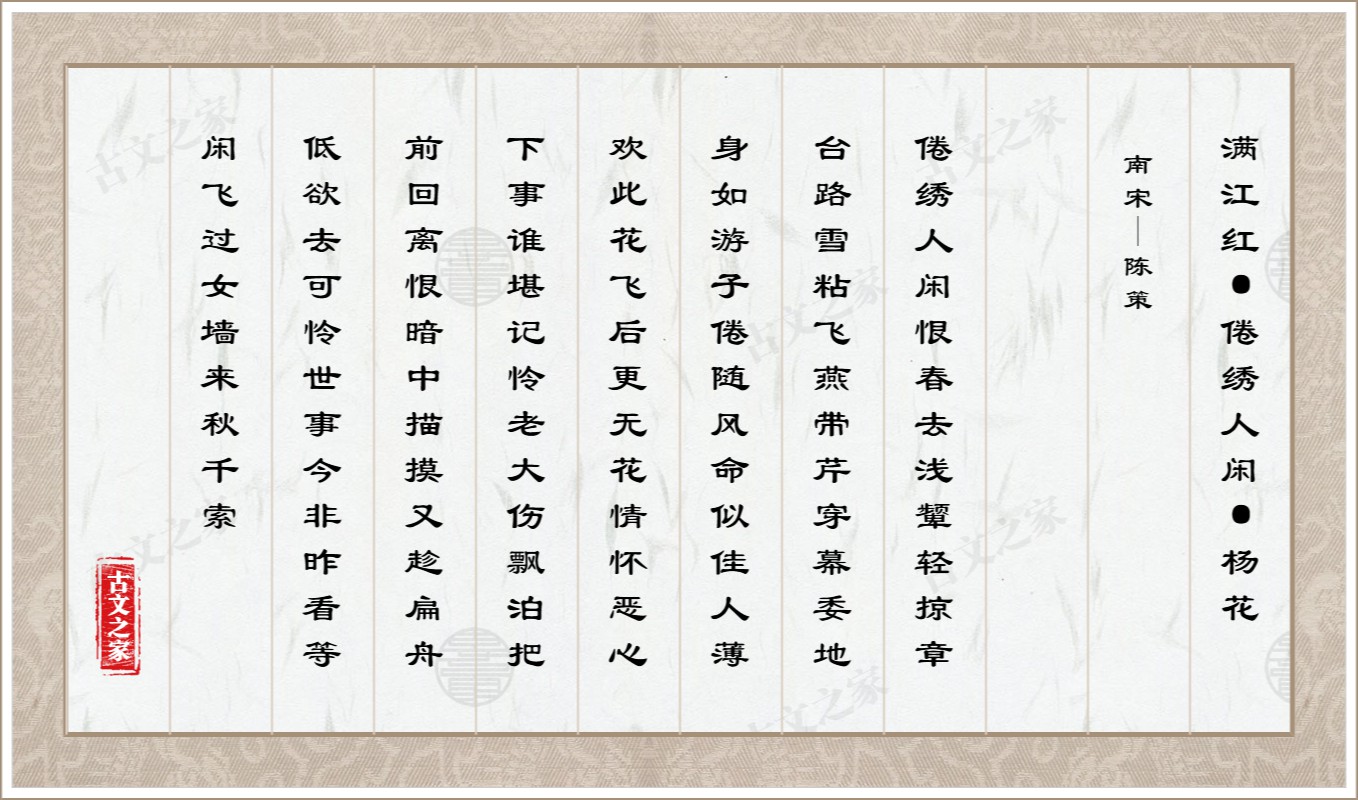 满江红•倦绣人闲•杨花
南宋—陈策
倦绣人闲恨春去浅颦轻掠章
台路雪粘飞燕带芹穿幕委地
身如游子倦随风命似佳人薄
欢此花飞后更无花情怀恶心
下事谁堪记怜老大伤飘泊把
前回离恨暗中描摸又趁扁舟
低欲去可怜世事今非昨看等
闲飞过女墙来秋千索
古文之家